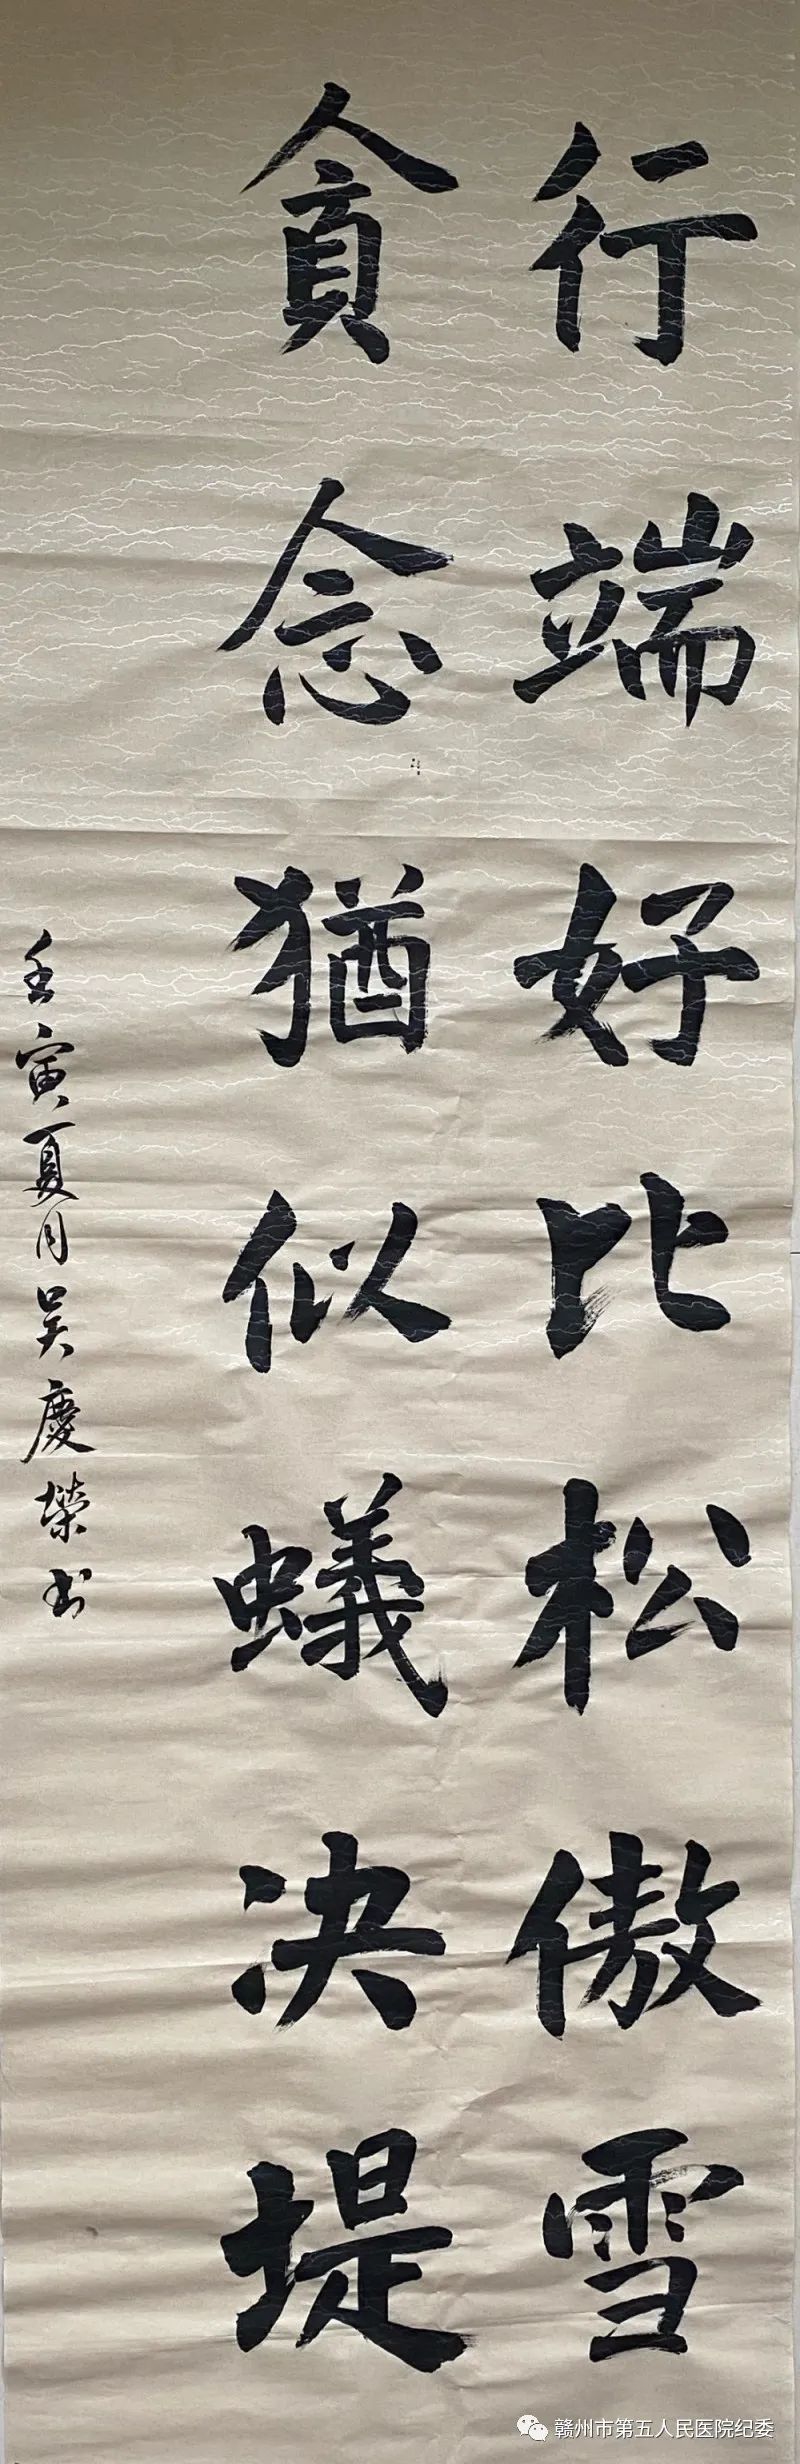 行端好比松傲雪
貪念猶似蟻决堤
壬寅夏月吴慶榮书
赣州市第五人民医院纪委